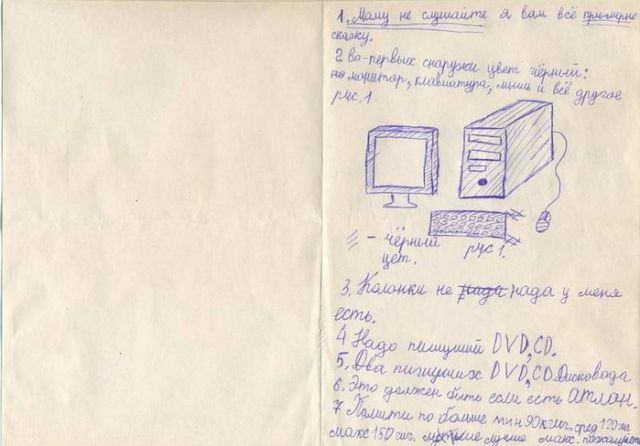 1. Маму не слушайте я вам всё примерно
скажу.
2 во-первых снаружи цвет чёрный:
монитор, клавиатура, мыш и всё другое
рис. 1
- чёрный
цет.
рис 1.
3. Колонки не нада у меня
есть.
4 Надо пишущий DVD, CD.
5. Два пишущих DVD, CD. Дисковода
6. Это должен быть если есть атлон.
7 Памити по больше мин 90 сред 120 гиг.
макс 150 гиг. лучше макс.